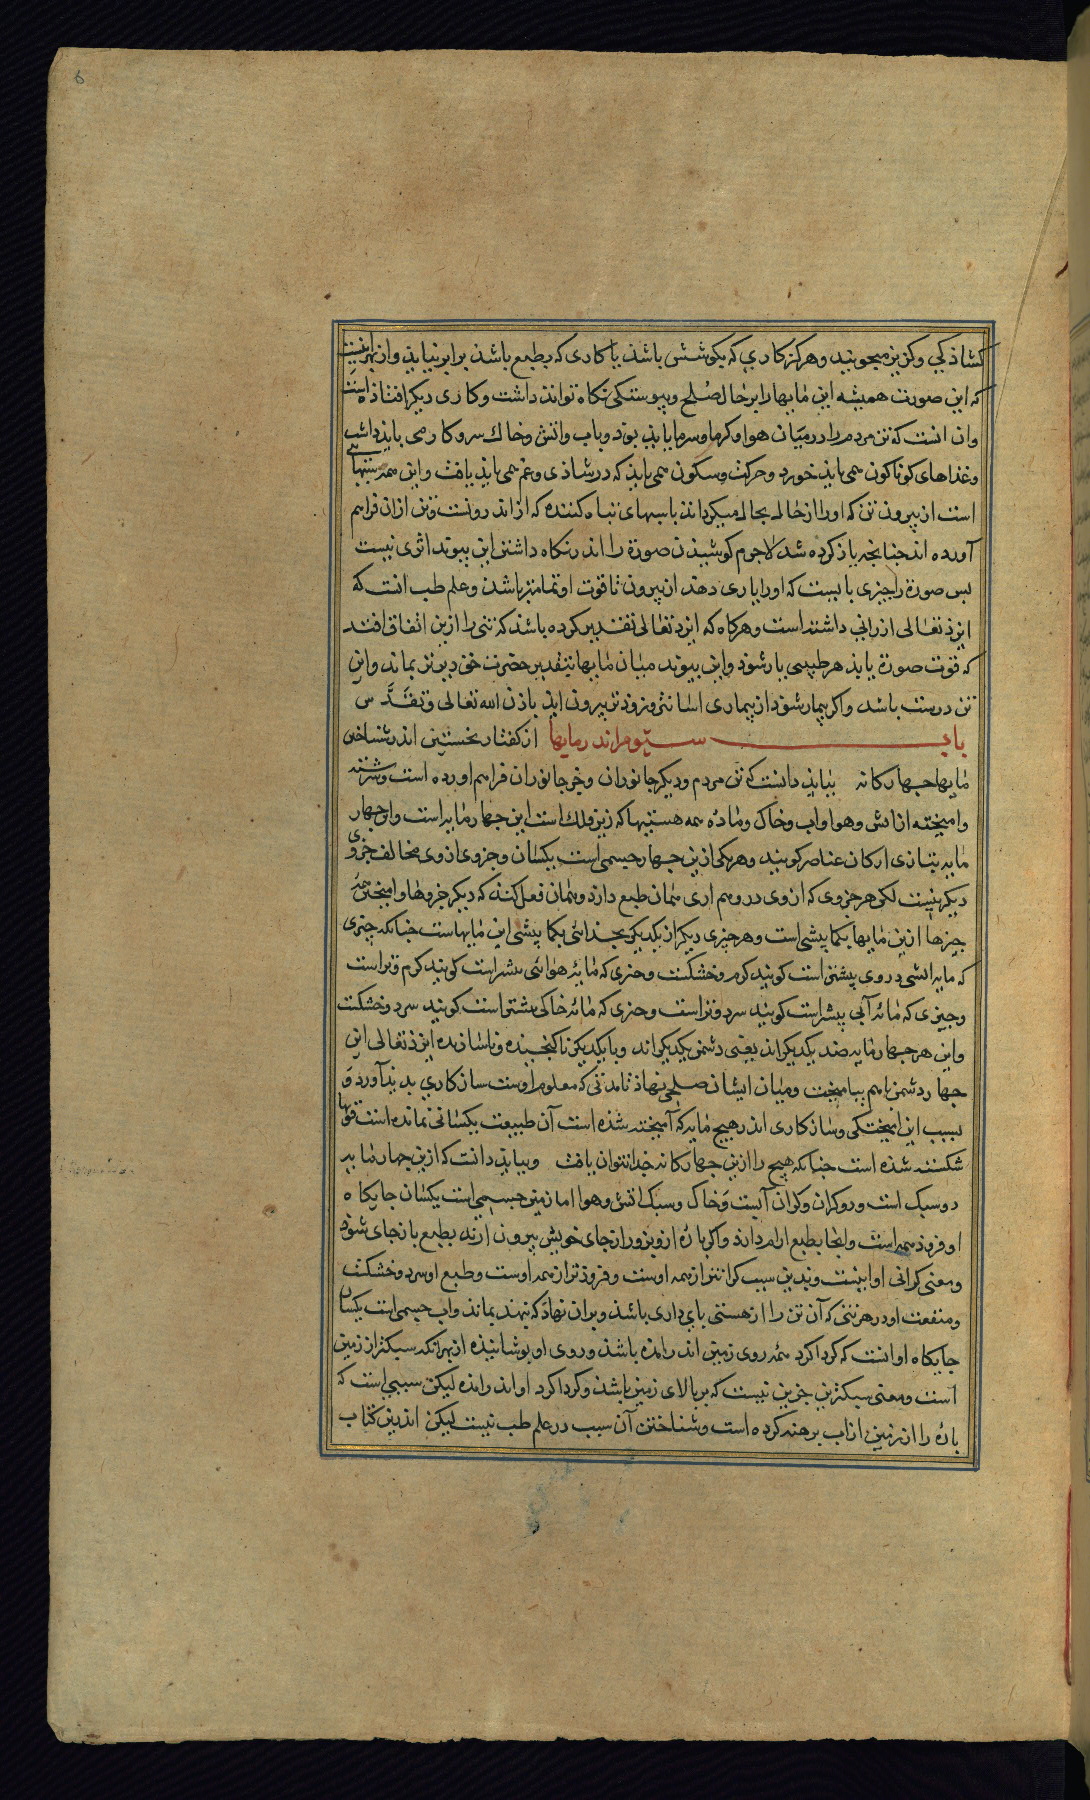 کشاذکی وکزیز میجویند وهرکز کاری که بکوشش باشذ باکاری که بطبع باشذ برابر نیایذ واز بهر اینست
که این صورت همیشه این مایها را برحال صلح وپیوستکی نکاه تواند داشت وکاری دیکر افتاذه است
وان انست که تن مردم را در میان هوا وکرما وسرما بایذ بوذ وباب واتش وخاک سروکار می باید داشت
وغذاهای کوناکون می بایذ خورد وحرکت وسکون می بایذ که در شاذی وغم می بایذ یافت واین همه سببهایی
است از بیرون تن که او را از حالی بحالی میکرداند باسبهای تباه کننده که از اندرونست وتن ازان فراهم
آورده اند جنانجه یاذ کرده شد لاجرم کوشیذن صورة را اندر نکاه داشتن این پیوند اثری نیست
بس صورة را جیزی بایست که او را یاری دهذ از بیرون تا قوت او تمامتر باشذ وعلم طب انست که
ایزذ تعالی ارزانی داشته است وهرکاه که ایزد تعالی تقدیر کرده باشذ که تنی را ازین اتفاق افتد
که قوت صورة یابذ هر طبیبی یار شوذ واین پیوند میان مایها بتقدیر حضرت حق دیرتر بماند واین
تن درست باشد واکر بیمار شوذ از بیماری اسانتر وزوذتر بیرون اید باذن الله تعالی وتقدس
باب سیوم اندر مایها از کفتار نخستین اندر شناختن
مایها جهارکانه ببایذ دانست که تن مردم ودیکر جانوران وجز جانوران فراهم اورده است وسرشته
وامیخته از اتش وهوا واب وخاک وماده همه هستیها که زیر فلک است این جهار مایه است واین جهار
مایه بتازی ارکان عناصر کویند وهر یکی ازین جهار جسمی است یکسان وجزوی از وی مخالف جزوی
دیکر نیست لکن هر جزوی که از وی در وهم اری همان طبع دارد وهمان فعل کند که دیکر جزوها وامیختن همه
جیزها ازین مایها بکمابیشی است وهر جیزی دیکر از یکدیکر بجذائی بکمابیشی این مایهاست جنانکه جیزی
که مایه اتشی در وی بیشتر است کویند کرم وخشکست وجیزی که مایه هوائی بیشتر است کویند کرم وتر است
وجیزی که مایه آبی بیشتر است کویند سرد وتر است وجیزی که مایه خاکی بیشتر است کویند سرد وخشکست
واین هر جهار مایه ضد یکدیکر اند یعنی دشمن یکدیکر اند وبا یکدیکر ناکنجنده وناسازنده ایزذ تعالی این
جهار دشمن باهم بیامیخت ومیان ایشان صلحی نهاذ تا مدتی که معلوم اوست سازکاری بدید آورد و
بسبب این امیختکی وسازکاری اندر هیچ مایه که آمیخته شذه است آن طبیعت یکسانی نمانده است قوتها
شکسته شذه است جنانکه هیچ را ازین جهارکانه جدا نتوان یافت وببایذ دانست که ازین جهار مایه
دو سبک است ودو کران وکران آبست وخاک وسبک اتش وهوا اما زمین جسمی است یکسان جایکاه
او فروذ همه است وانجا بطبع ارام دارذ واکر باره ازو بزور از جای خویش بیرون ارند بطبع باز جای شوذ
ومعنی کرانی او اینست وبدین سبب کرانتر از همه اوست وفروذتر از همه اوست وطبع او سرد وخشکست
ومنفعت او در هر تنی که آن تن را از هستی پایداری باشذ وبران نهاذ که نهند بماند واب جسمی است یکسان
جایکاه او انست که کرداکرد همه روی زمین اندر امده باشذ وروی او پوشانیذه از بهر انکه سبکتر از زمین
است ومعنی سبکتر این جزین نیست که بر بالای زمین باشذ وکرداکرد او اندر امده لیکن سببی است که
باره را از زمین از اب برهنه کرده است وشناختن آن سبب در علم طب نیست لیکن اندرین کتاب